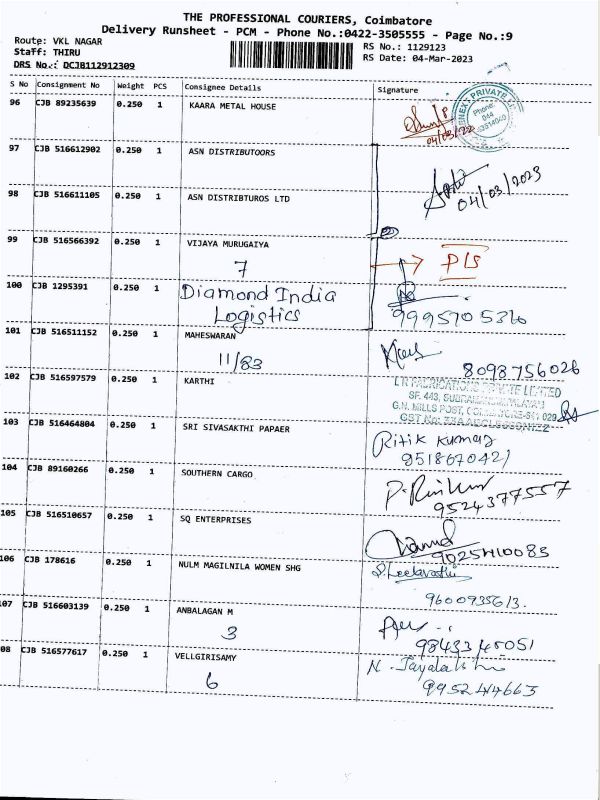 THE PROFESSIONAL COURIERS, Coimbatore
Delivery Runsheet - PCM - Phone No.:0422-3505555 - Page No.:9
Route: VKL NAGAR
RS No.: 1129123
Staff: THIRU
RS Date: 04-Mar-2023
DRS No.: DCJB112912309
S No Consignment No Weight PCS Consignee Details Signature
96 CJB 89235639 0.250 1 KAARA METAL HOUSE
PRIVATE
Phone:
97 CJB 516612902 0.250 1 ASN DISTRIBUTOORS
04/03/2023
98 CJB 516611105 0.250 1 ASN DISTRIBTUROS LTD
99 CJB 516566392 0.250 1 VIJAYA MURUGAIYA
7
100 CJB 1295391 0.250 1 Diamond India
Logistics
101 CJB 516511152 0.250 1 MAHESWARAN
11/83
8098756026
102 CJB 516597579 0.250 1 KARTHI
SF. 443,
G.N. MILLS POST,
103 CJB 516464804 0.250 1 SRI SIVASAKTHI PAPAER
Ritik Kumar
9518670421
104 CJB 89160266 0.250 1 SOUTHERN CARGO
9524377557
105 CJB 516510657 0.250 1 SQ ENTERPRISES
9025410083
106 CJB 178616 0.250 1 NULM MAGILNILA WOMEN SHG
9600935613.
07 CJB 516603139 0.250 1 ANBALAGAN M
3
9843345051
08 CJB 516577617 0.250 1 VELLGIRISAMY
6
9952444663